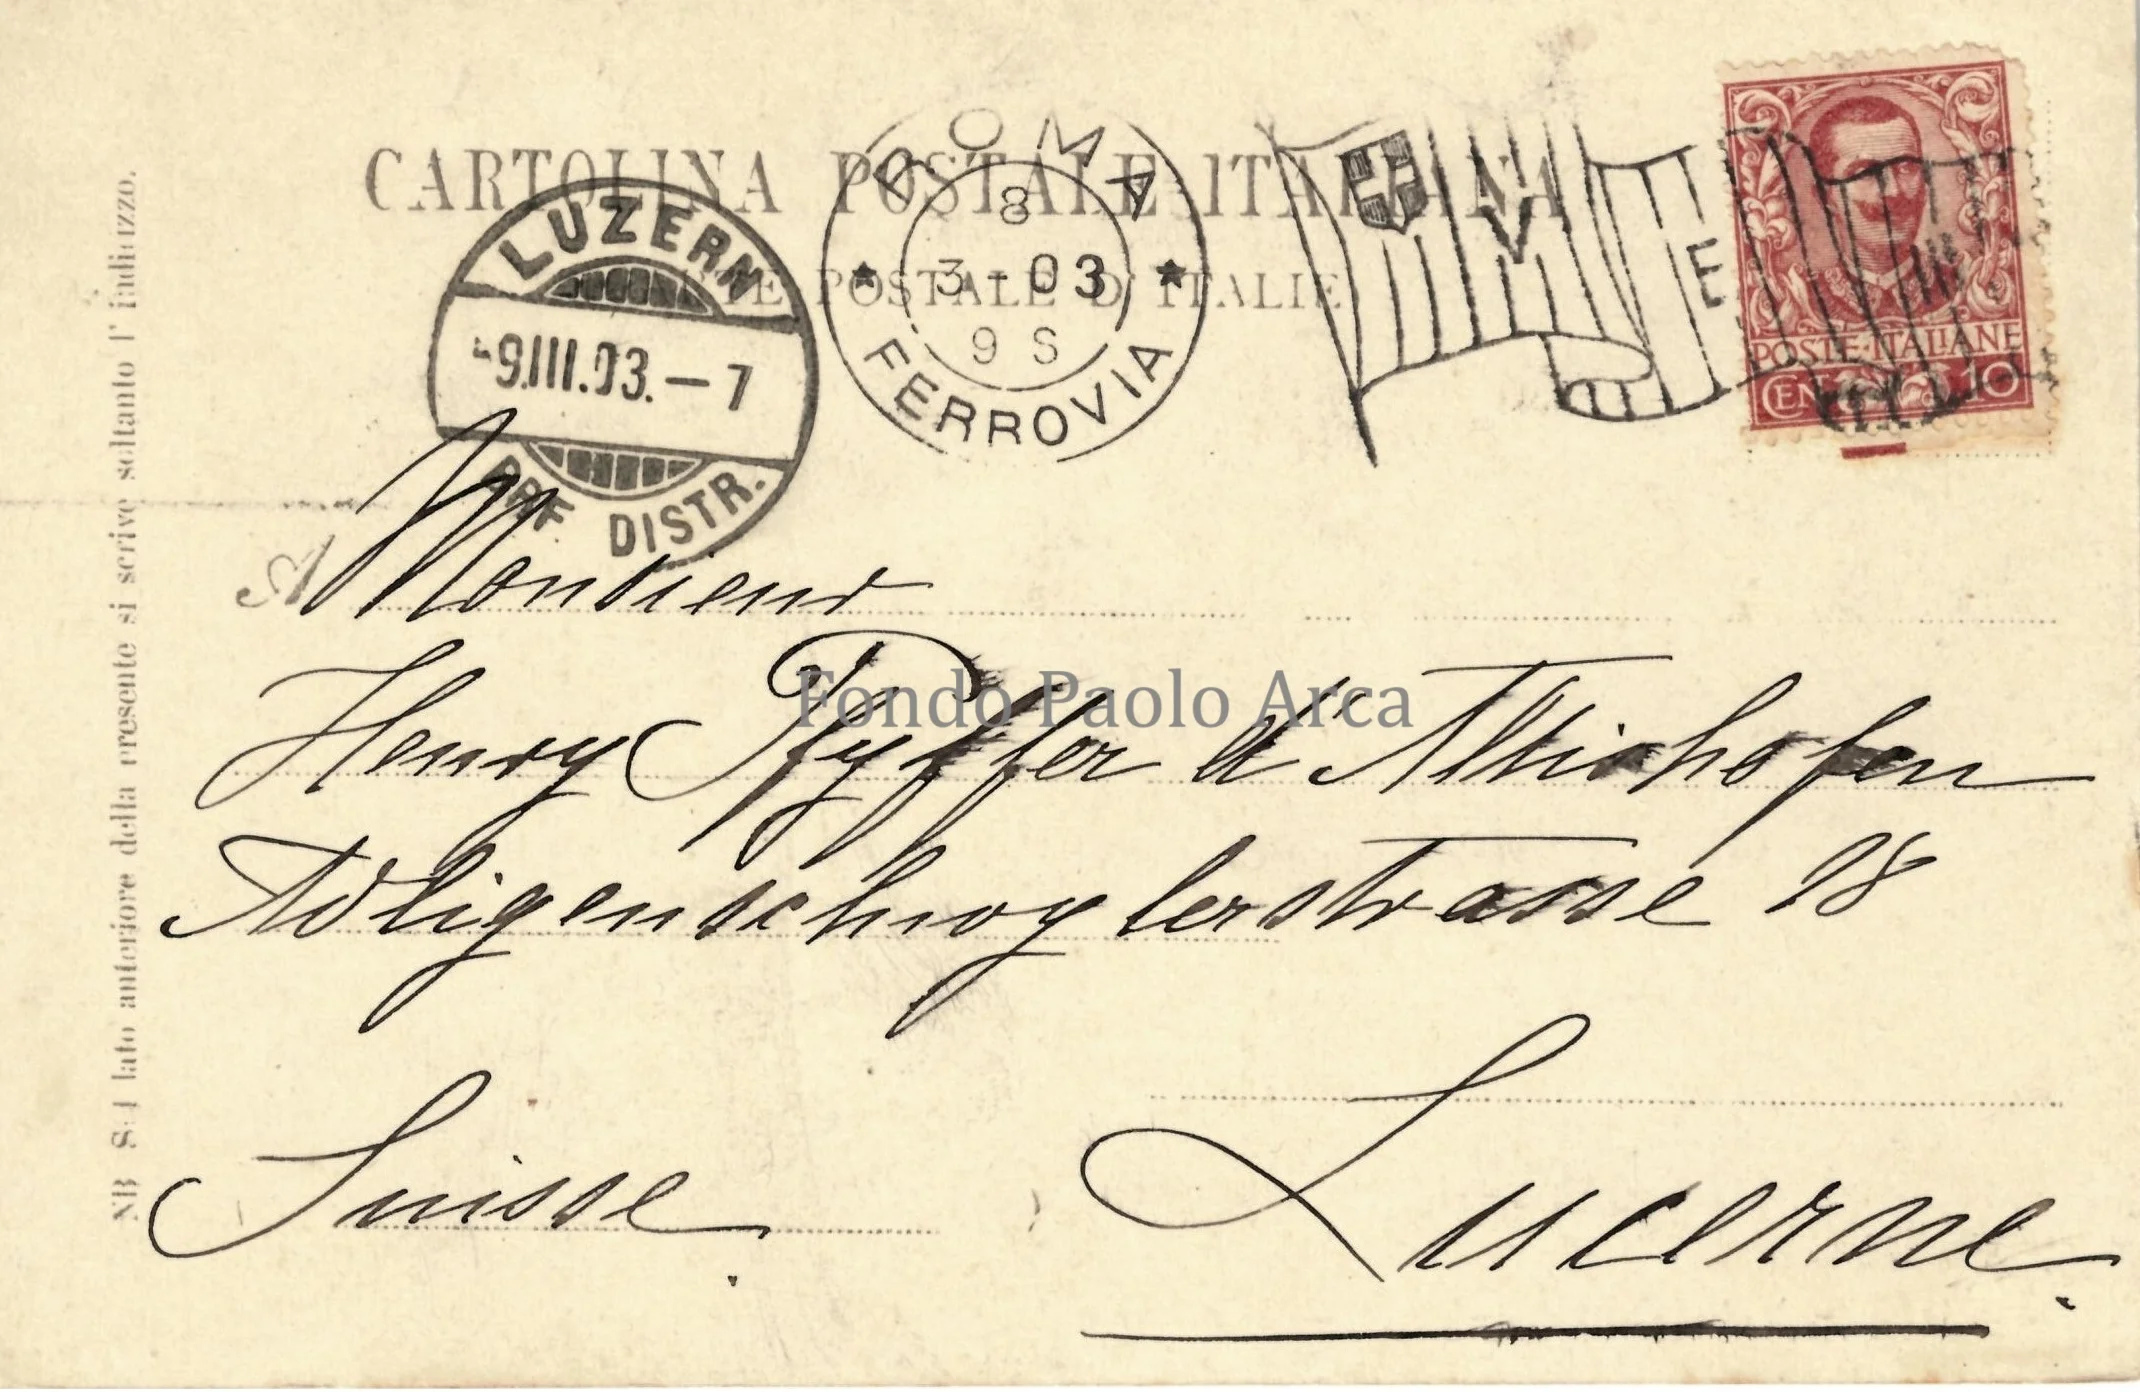 CARTOLINA POSTALE ITALIANA
POSTALE D'ITALIE
LUZERN
-9.III.03.-7
BRF. DISTR.
ROMA
8
3-03
9 S
FERROVIA
V
E
III
POSTE·ITALIANE
CEN 10
A Monsieur
Henry Pfyffer d'Altishofen
Fondo Paolo Arca
Adligenschwylerstrasse 18
Suisse.
Lucerne.
NB Sul lato anteriore della presente si scrive soltanto l'indirizzo.